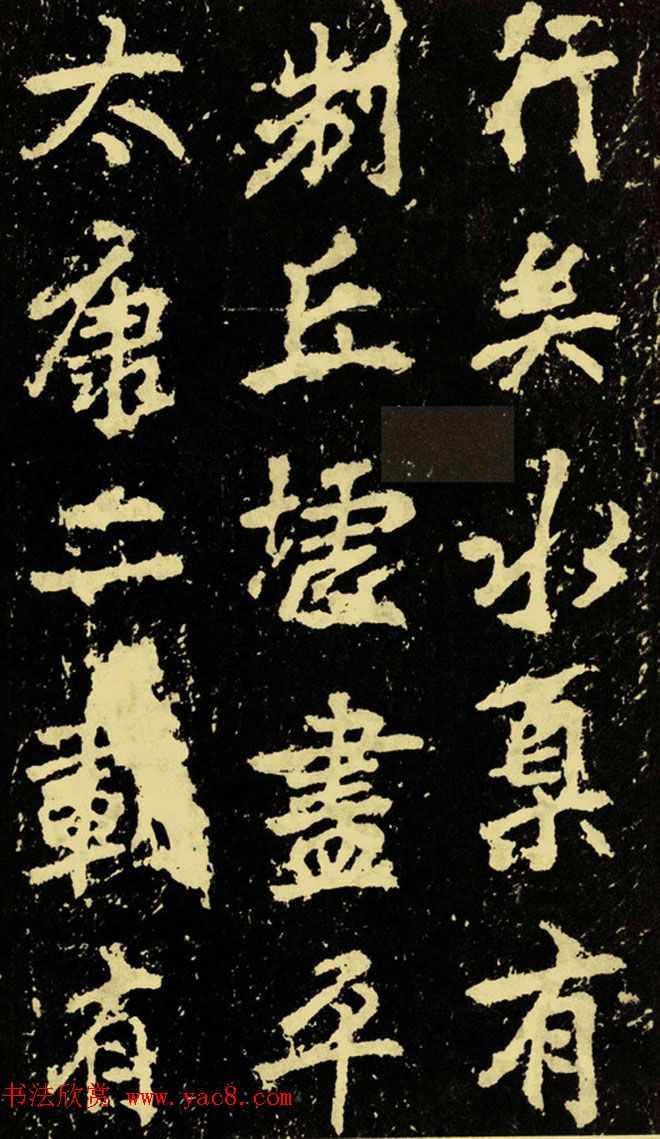 行矣水臬有
制丘墟盡平
太康二載有
书法欣赏 www.yac8.com